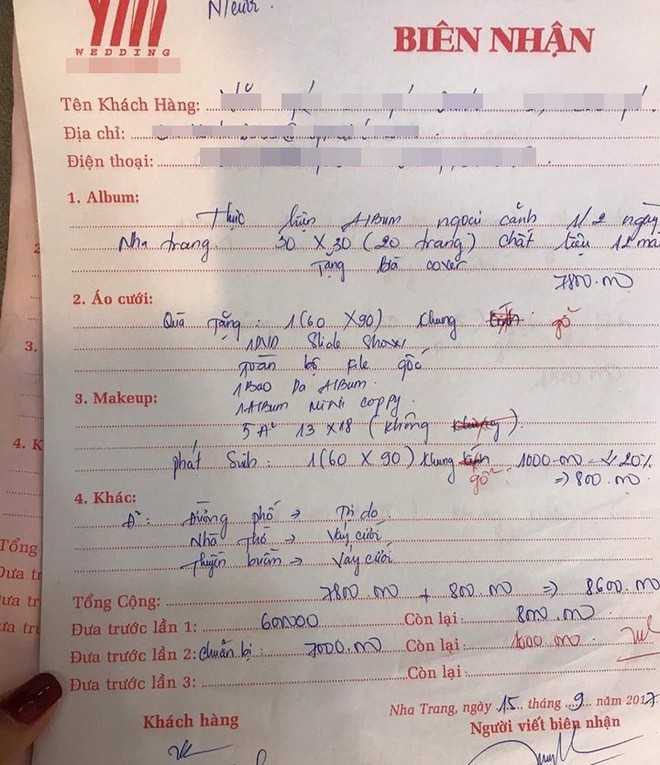 N/cưới.
YM
WEDDING
BIÊN NHẬN
Tên Khách Hàng:
Địa chỉ:
Điện thoại:
1. Album:
Thực hiện Album ngoại cảnh 1/2 ngày
Nha trang. 30 x 30 (20 trang) chất liệu
Tặng Bìa cover
7800.000
2. Áo cưới:
Quà Tặng: 1(60 x 90) khung gỗ
1DVD Slide Show
Toàn bộ file gốc
1Bao Da Album.
3. Makeup:
1Album mini coppy.
5 A² 13 x 18 (không khung).
phát Sinh: 1(60 x 90) khung 1000.000 ↓ 20%
gỗ ⇒ 800.000
4. Khác:
Đường phố → Tự do
Nhà Thờ → Váy cưới
Thuyền buồm → Váy cưới
7800.000 + 800.000 ⇒ 8600.000
Tổng Cộng:
Đưa trước lần 1: 600.000 Còn lại: 800.000
Đưa trước lần 2: chuẩn bị: 7000.000 Còn lại: 1000.000
Đưa trước lần 3: Còn lại:
Nha Trang, ngày 15 tháng 9 năm 2017
Khách hàng Người viết biên nhận
2
3.
4. K
Tổng
Đưa tr
ưa tr
ưa trư